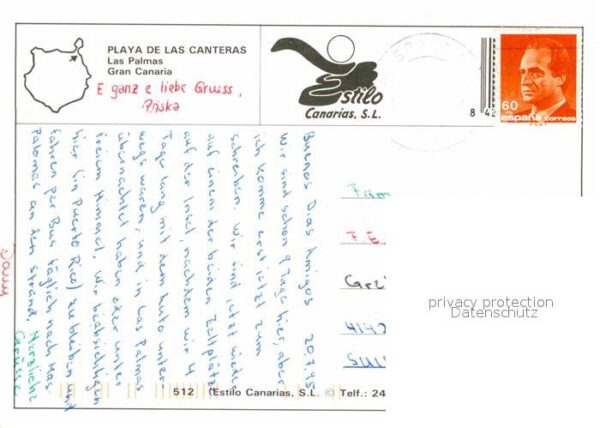 PLAYA DE LAS CANTERAS
Las Palmas
Gran Canaria
E ganz e liebe Gruess,
Priska
Estilo
Canarias, S.L.
8 42
60
españa correos
Buenos Dias Amigos 20.7.95
Wir sind schon 9 Tage hier, aber
ich komme erst jetzt zum
schreiben. Wir sind jetzt wieder
auf einem der beiden Zeltplätze
auf der Insel, nachdem wir 4
Tage lang mit dem Auto unter-
wegs waren, und in Las Palmas
übernachtet haben oder unter
freiem Himmel. Wir beabsichtigen
hier (in Puerto Rico) zu bleiben und
fahren per Bus täglich nach Mas-
palomas an den Strand. Herzliche
Grüsse
Fam
7.
414
Sui
privacy protection
Datenschutz
512 (Estilo Canarias, S.L. © Telf.: 24